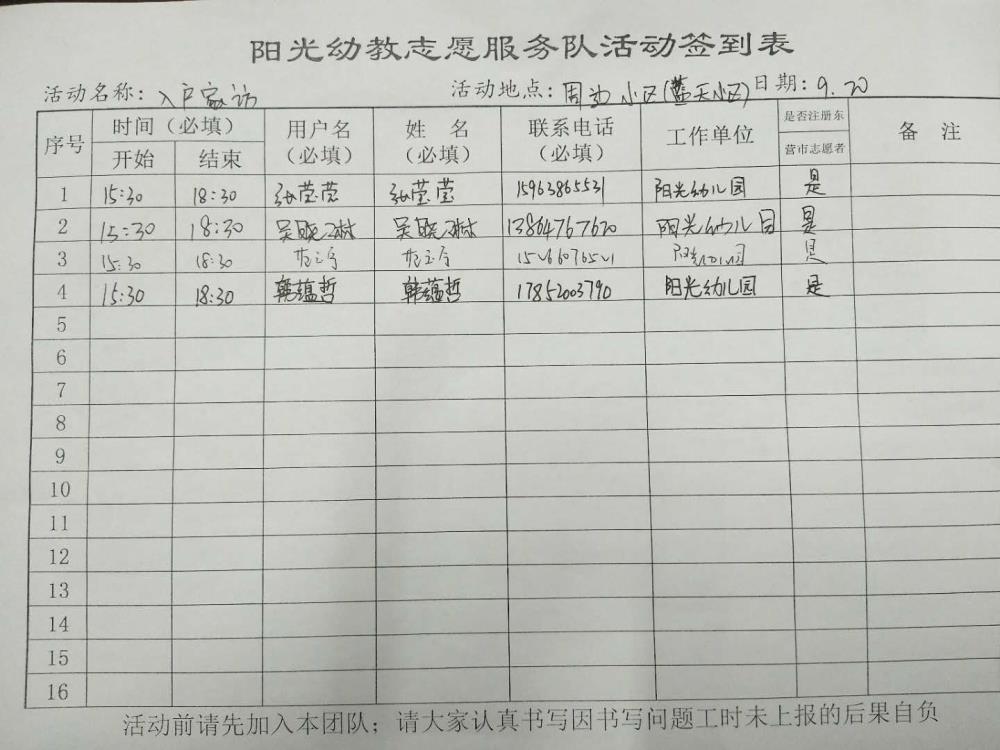 阳光幼教志愿服务队活动签到表
活动名称：入户家访 活动地点：周边小区(蓝天小区) 日期：9.20
序号 时间（必填） 用户名（必填） 姓名（必填） 联系电话（必填） 工作单位 是否注册东营市志愿者 备注
开始 结束
1 15:30 18:30 张莹莹 张莹莹 15963865531 阳光幼儿园 是
2 15:30 18:30 吴晓琳 吴晓琳 13864767620 阳光幼儿园 是
3 15:30 18:30 阳光幼儿园 是
4 15:30 18:30 韩蕴哲 韩蕴哲 17852003790 阳光幼儿园 是
5
6
7
8
9
10
11
12
13
14
15
16
活动前请先加入本团队；请大家认真书写因书写问题工时未上报的后果自负